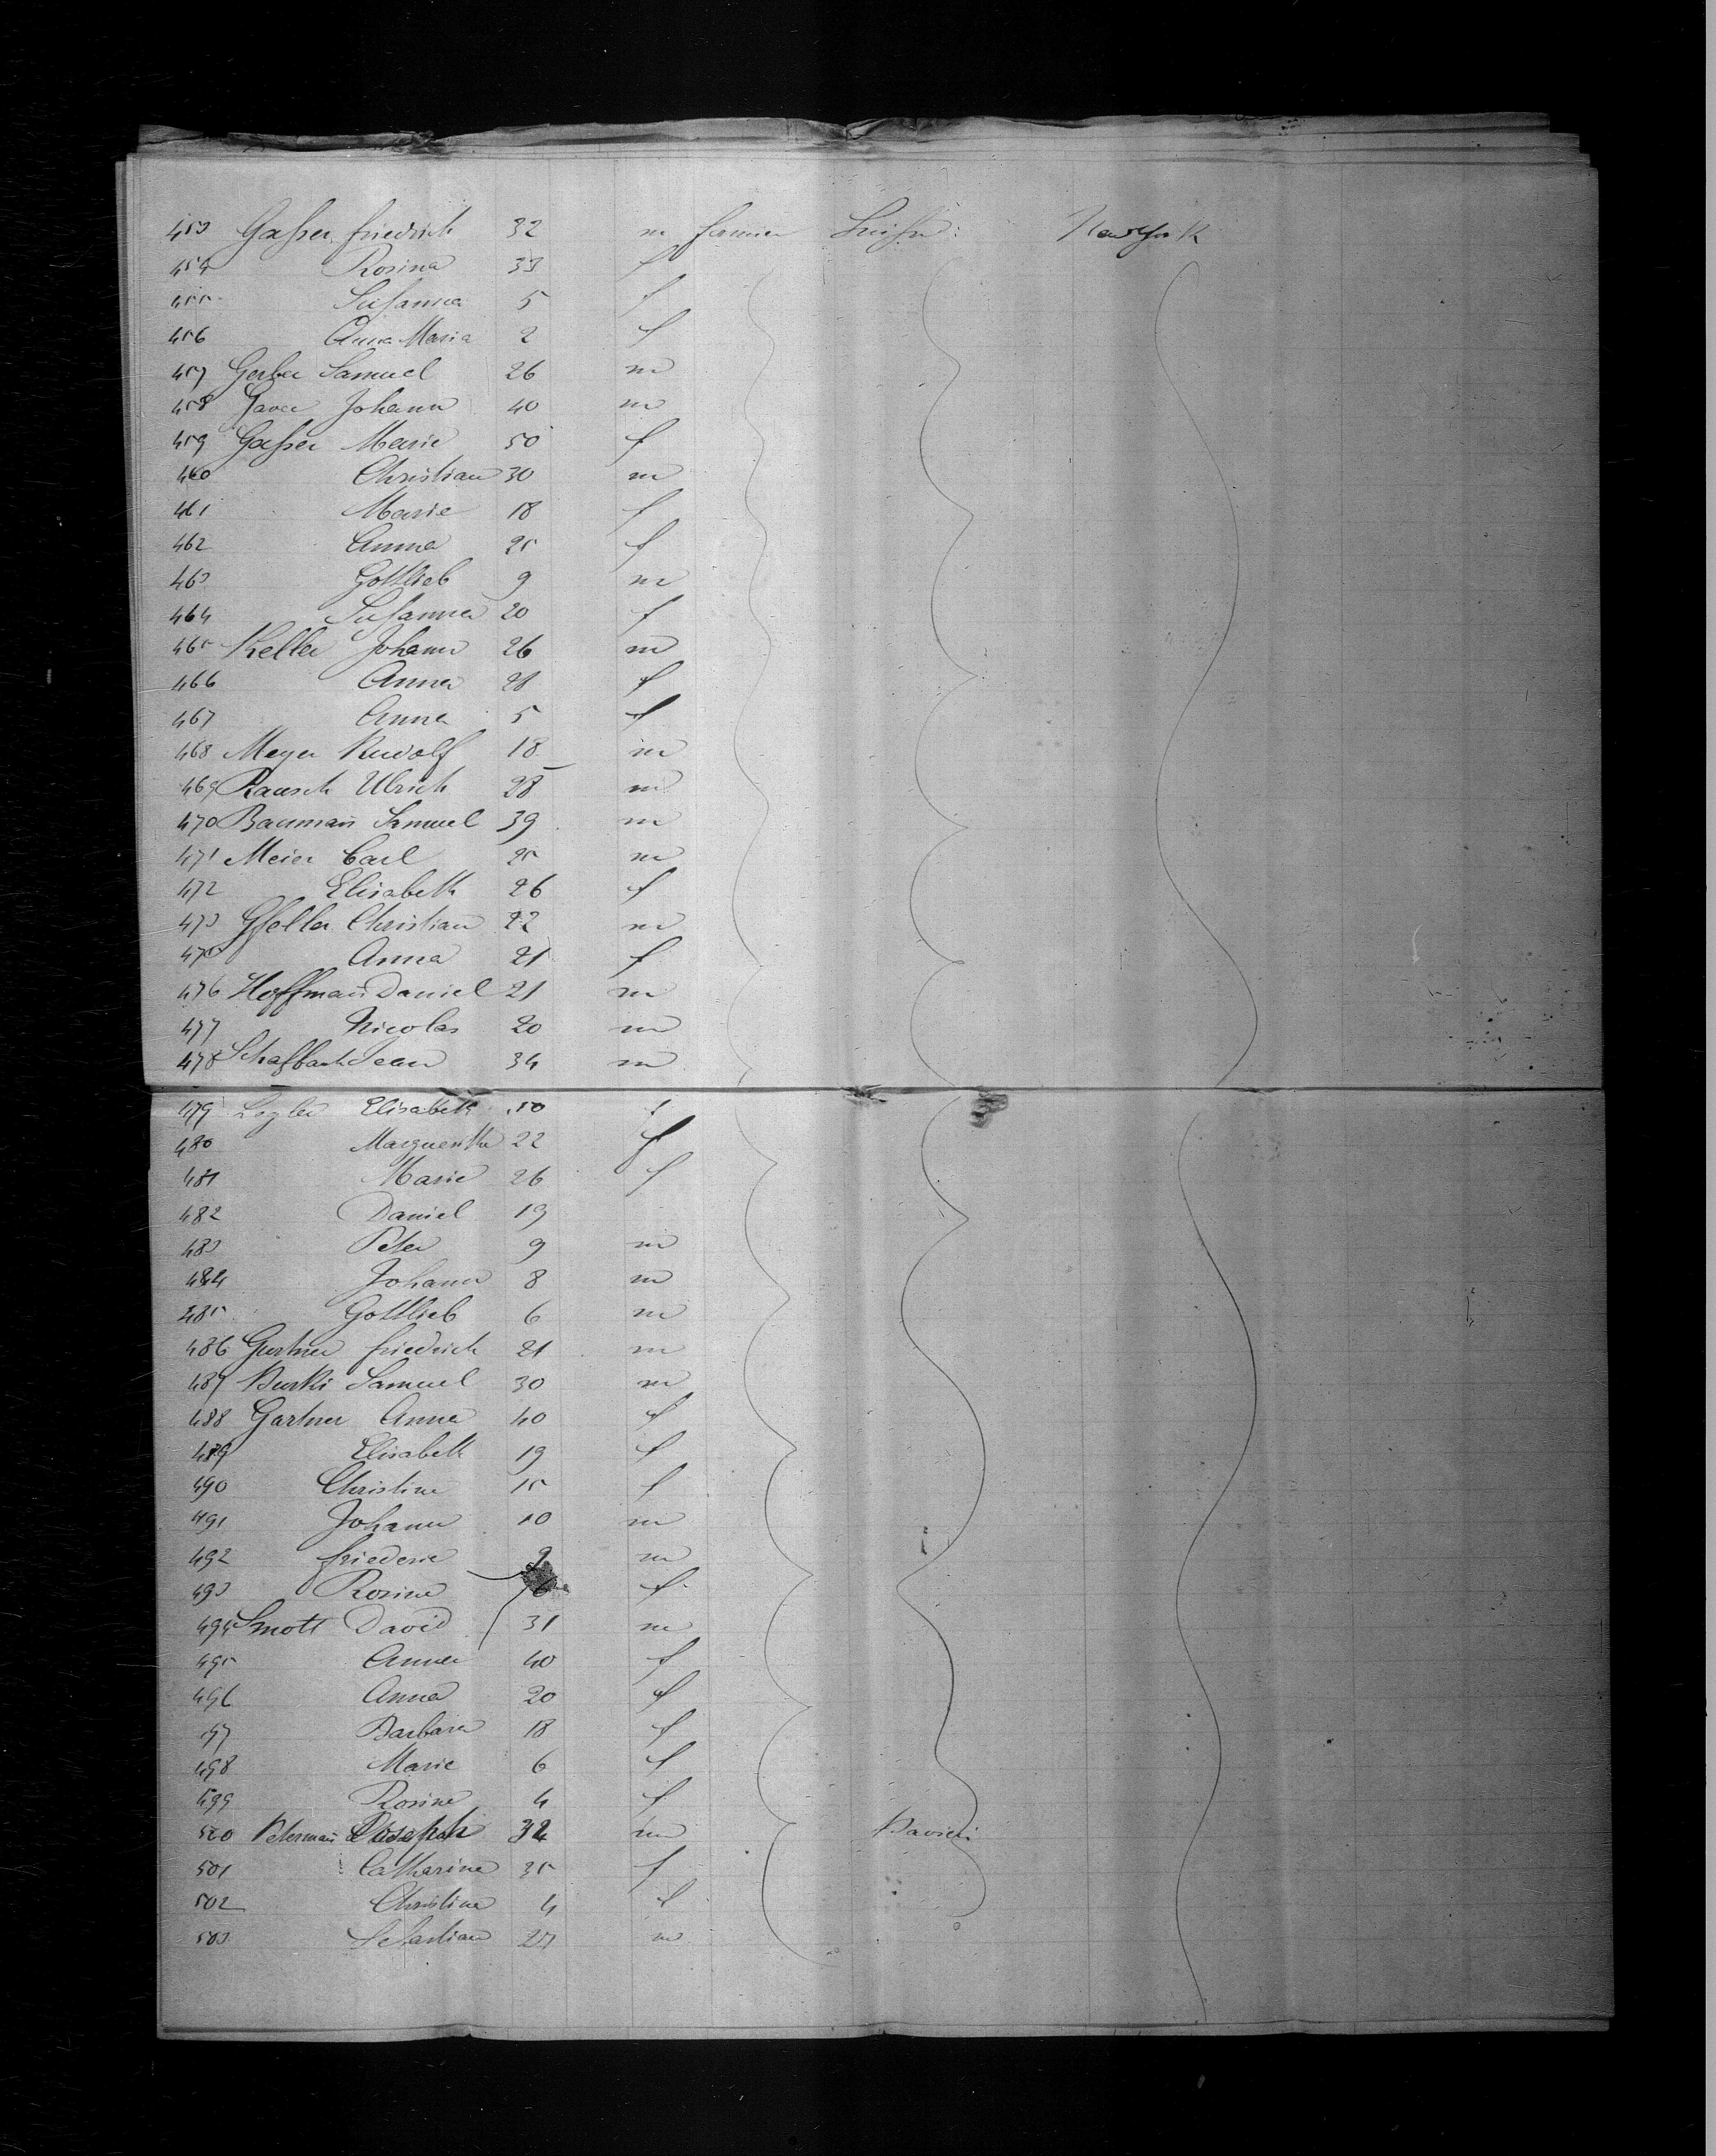 453 Gasser friedrich 32 m fermier Suisse: New York
454 Rosina 33 f
455 Susanna 5 f
456 Anna Maria 2 f
457 Gerber Samuel 26 m
458 Johann 40 m
459 Gasser Marie 50 f
460 Christian 30 m
461 Marie 18 f
462 Anna 25 f
463 Gottlieb 9 m
464 Susanna 20 f
465 Keller Johann 26 m
466 Anna 28 f
467 Anna 5 f
468 Meyer Rudolf 18 m
469 Rausch Ulrich 28 m
470 Baumañ Samuel 39 m
471 Meier Carl 25 m
472 Elisabeth 26 f
473 Gfeller Christian 22 m
475 Anna 21 f
476 Hoffmañ Daniel 21 m
477 Nicolas 20 m
478 Jean 34 m
479 Elisabeth 50 f
480 Marguerithe 22 f
481 Marie 26 f
482 Daniel 19
483 Peter 9 m
484 Johann 8 m
485 Gottlieb 6 m
486 Gurtner friedrich 21 m
487 Burki Samuel 30 m
488 Gartner Anna 40 f
489 Elisabeth 19 f
490 Christine 15 f
491 Johann 10 m
492 9 m
493 Rosine f
494 Smott David 31 m
495 Anna 40 f
496 Anna 20 f
497 Barbara 18 f
498 Marie 6 f
499 Rosine 4 f
500 Petermañ Joseph 32 m Bavière
501 Catharina 35 f
502 Christina 4 f
503 Sebastian 27 m